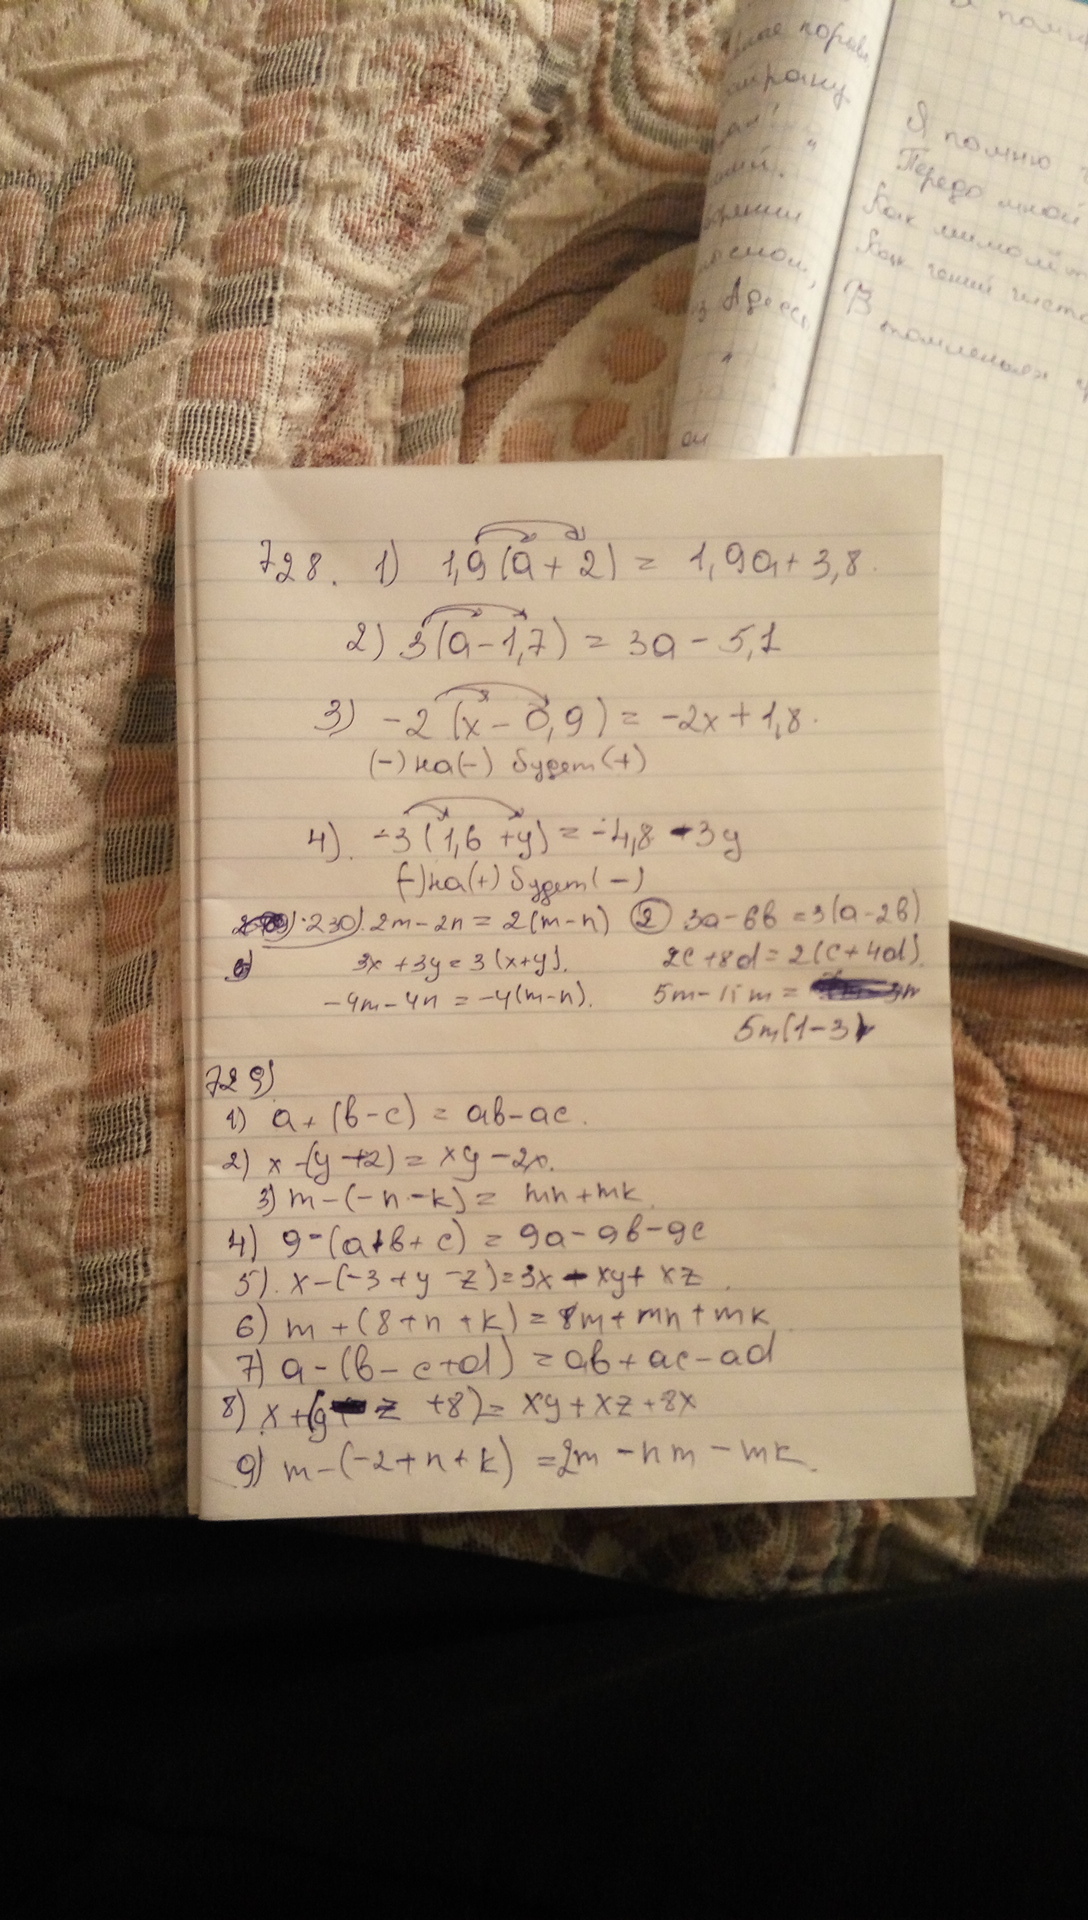 я помню
Я помню
Передо мной
Как мимолёт
Как гений чисто
В томленьях
728. 1) 1,9(a+2) = 1,9a+3,8.
2) 3(a-1,7) = 3a-5,1
3) -2(x-0,9) = -2x+1,8.
(-) на(-) будет(+)
4). -3(1,6+y) = -4,8-3y
(-)на(+) будет(-)
230). 2m-2n = 2(m-n) (2) 3a-6b = 3(a-2b)
3x+3y = 3(x+y). 2c+8d = 2(c+4d).
-4m-4n = -4(m-n). 5m-15m =
5m(1-3)
729)
1) a+(b-c) = ab-ac.
2) x-(y+2) = xy-2x.
3) m-(-n-k) = mn+mk.
4) 9-(a+b+c) = 9a-9b-9c
5). x-(-3+y-z) = 3x-xy+xz.
6) m+(8+n+k) = 8m+mn+mk
7) a-(b-c+d) = ab+ac-ad
8) x+(y z+8) = xy+xz+8x
9) m-(-2+n+k) = 2m-nm-mk.